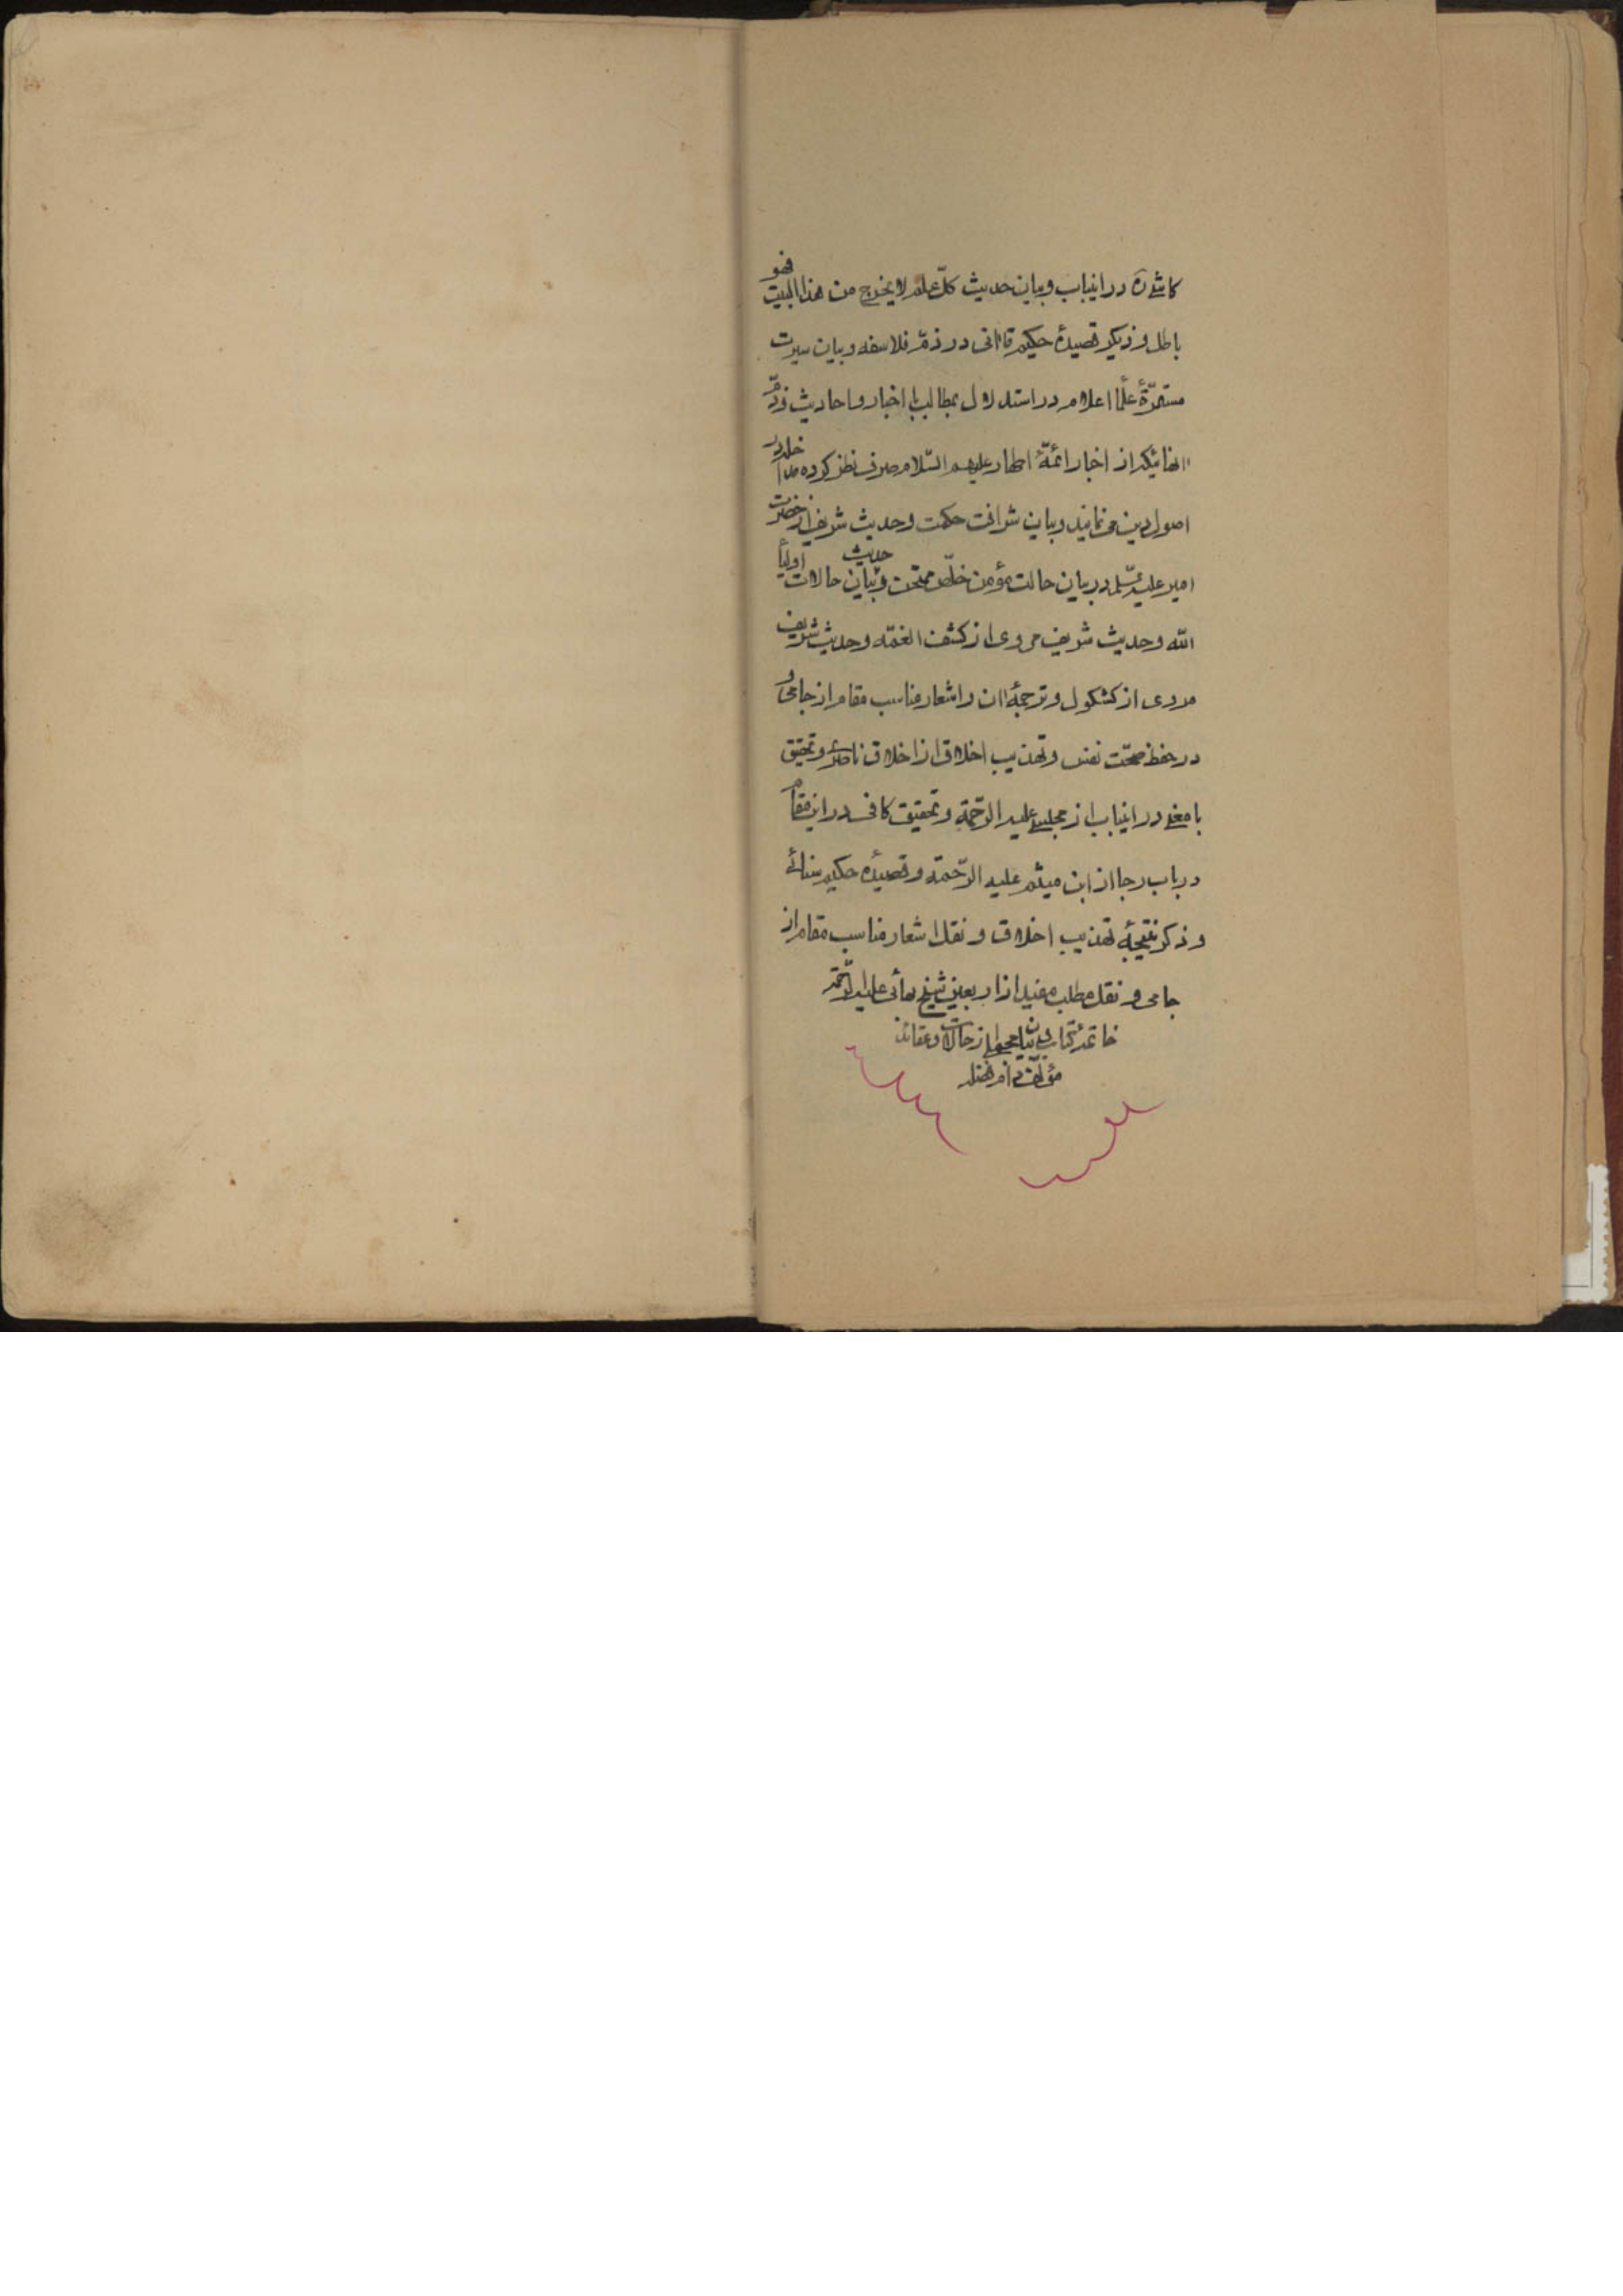 کاشی ره در اینباب و بیان حدیث کلّ علم لا یخرج من هذا البیت فهو
باطل و ذکر قصیدهٔ حکیم قاآنی در ذمّ فلاسفه و بیان سیرت
مستمرّهٔ علما اعلام در استدلال بمطالب با اخبار و احادیث و ذمّ
آنهائیکه از اخبار ائمّهٔ اطهار علیهم السّلام صرف نظر کرده
اصول دین می نمایند و بیان شرافت حکمت و حدیث شریف از حضرت
امیر علیه السّلم در بیان حالت مؤمن ممتحن و حدیث بیان حالات اولیأ
اللّه و حدیث شریف مروی از کشف الغمّه و حدیث شریف
مروی از کشکول و ترجمهٔ آن و اشعار مناسب مقام از جامی و
در حفظ صحّت نفس و تهذیب اخلاق از اخلاق ناصری و تحقیق
بامغز در اینباب از مجلسی علیه الرّحمة و تحقیق کافی در این مقام
در باب رجا از ابن میثم علیه الرّحمة و قصیدهٔ حکیم سنائی
و ذکر نتیجهٔ تهذیب اخلاق و نقل اشعار مناسب مقام از
جامی و نقل مطلب مفید از اربعین شیخ بهائی علیه الرّحمة
خاتمهٔ کتاب در بیان از حالات و عقائد
مؤلّف دام فضله